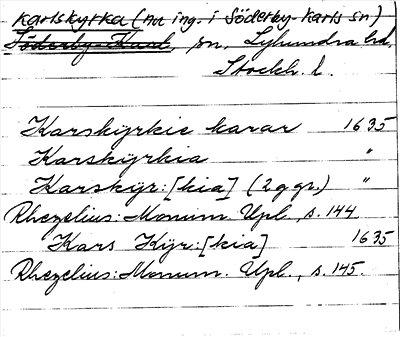 Karlskyrka (Nu ing. i Söderby-Karls sn)
Söderby-Karl, sn, Lyhundra hd,
Stockh. l.
Karskyrkie karar 1635
Karskyrkia "
Karskyr:[kia] (2 ggr.) "
Rhezelius: Monum. Upl., s. 144.
Kars Kyr:[kia] 1635
Rhezelius: Monum. Upl., s. 145.